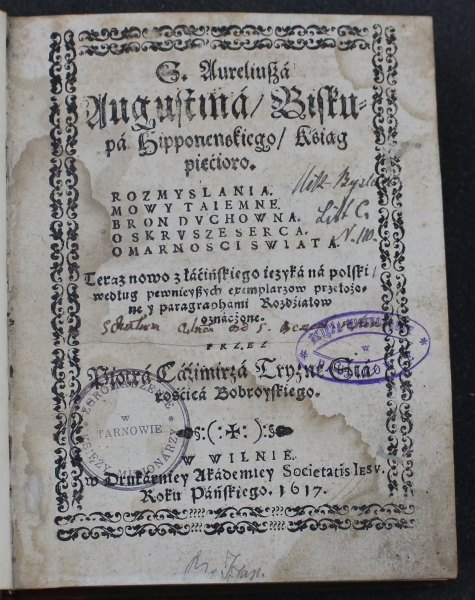 S. Aureliuſzá
Auguſtiná / Biſku-
pá Hipponenſkiego / Kſiąg
pięcioro.
ROZMYSLANIA.
MOWY TAIEMNE.
BRON DVCHOWNA.
O SKRVSZE SERCA.
O MARNOSCI SWIATA.
Teraz nowo z łáćińſkiego ięzyká ná polſki /
według pewnieyſzych exemplarzow przełożo-
ne y paragraphami Rozdźiałow
oznaczone.
PRZEZ
Piotrá Cáźimirzá Tryznę Stá-
rośćicá Bobroyſkiego.
W WILNIE.
w Drukárniey Akádemiey Societatis IESV.
Roku Páńſkiego. 1617.
ZGROMADZENIE
W
TARNOWIE
KSIĘŻY MISJONARZY
Litt C.